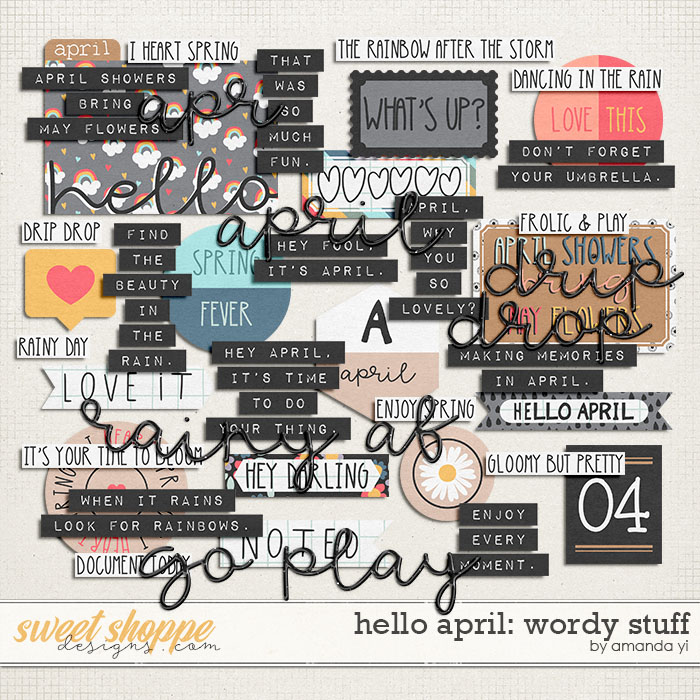 april
I HEART SPRING
APRIL SHOWERS
BRING
MAY FLOWERS
apr
hello
THAT
WAS
SO
MUCH
FUN.
THE RAINBOW AFTER THE STORM
WHAT'S UP?
DANCING IN THE RAIN
LOVE THIS
DON'T FORGET
YOUR UMBRELLA.
DRIP DROP
FIND
THE
BEAUTY
IN
THE
RAIN.
SPRING
FEVER
april
HEY FOOL,
IT'S APRIL.
APRIL,
WHY
YOU
SO
LOVELY?
FROLIC & PLAY
APRIL SHOWERS
bring
MAY FLOWERS
drip
drop
RAINY DAY
LOVE IT
HEY APRIL,
IT'S TIME
TO DO
YOUR THING.
A
april
MAKING MEMORIES
IN APRIL.
HELLO APRIL
rainy af
ENJOY SPRING
IT'S YOUR TIME TO BLOOM
WHEN IT RAINS
LOOK FOR RAINBOWS.
DOCUMENT TODAY
HEY DARLING
NOTED
go play
GLOOMY BUT PRETTY
04
ENJOY
EVERY
MOMENT.
sweet shoppe
designs.com
hello april: wordy stuff
by amanda yi